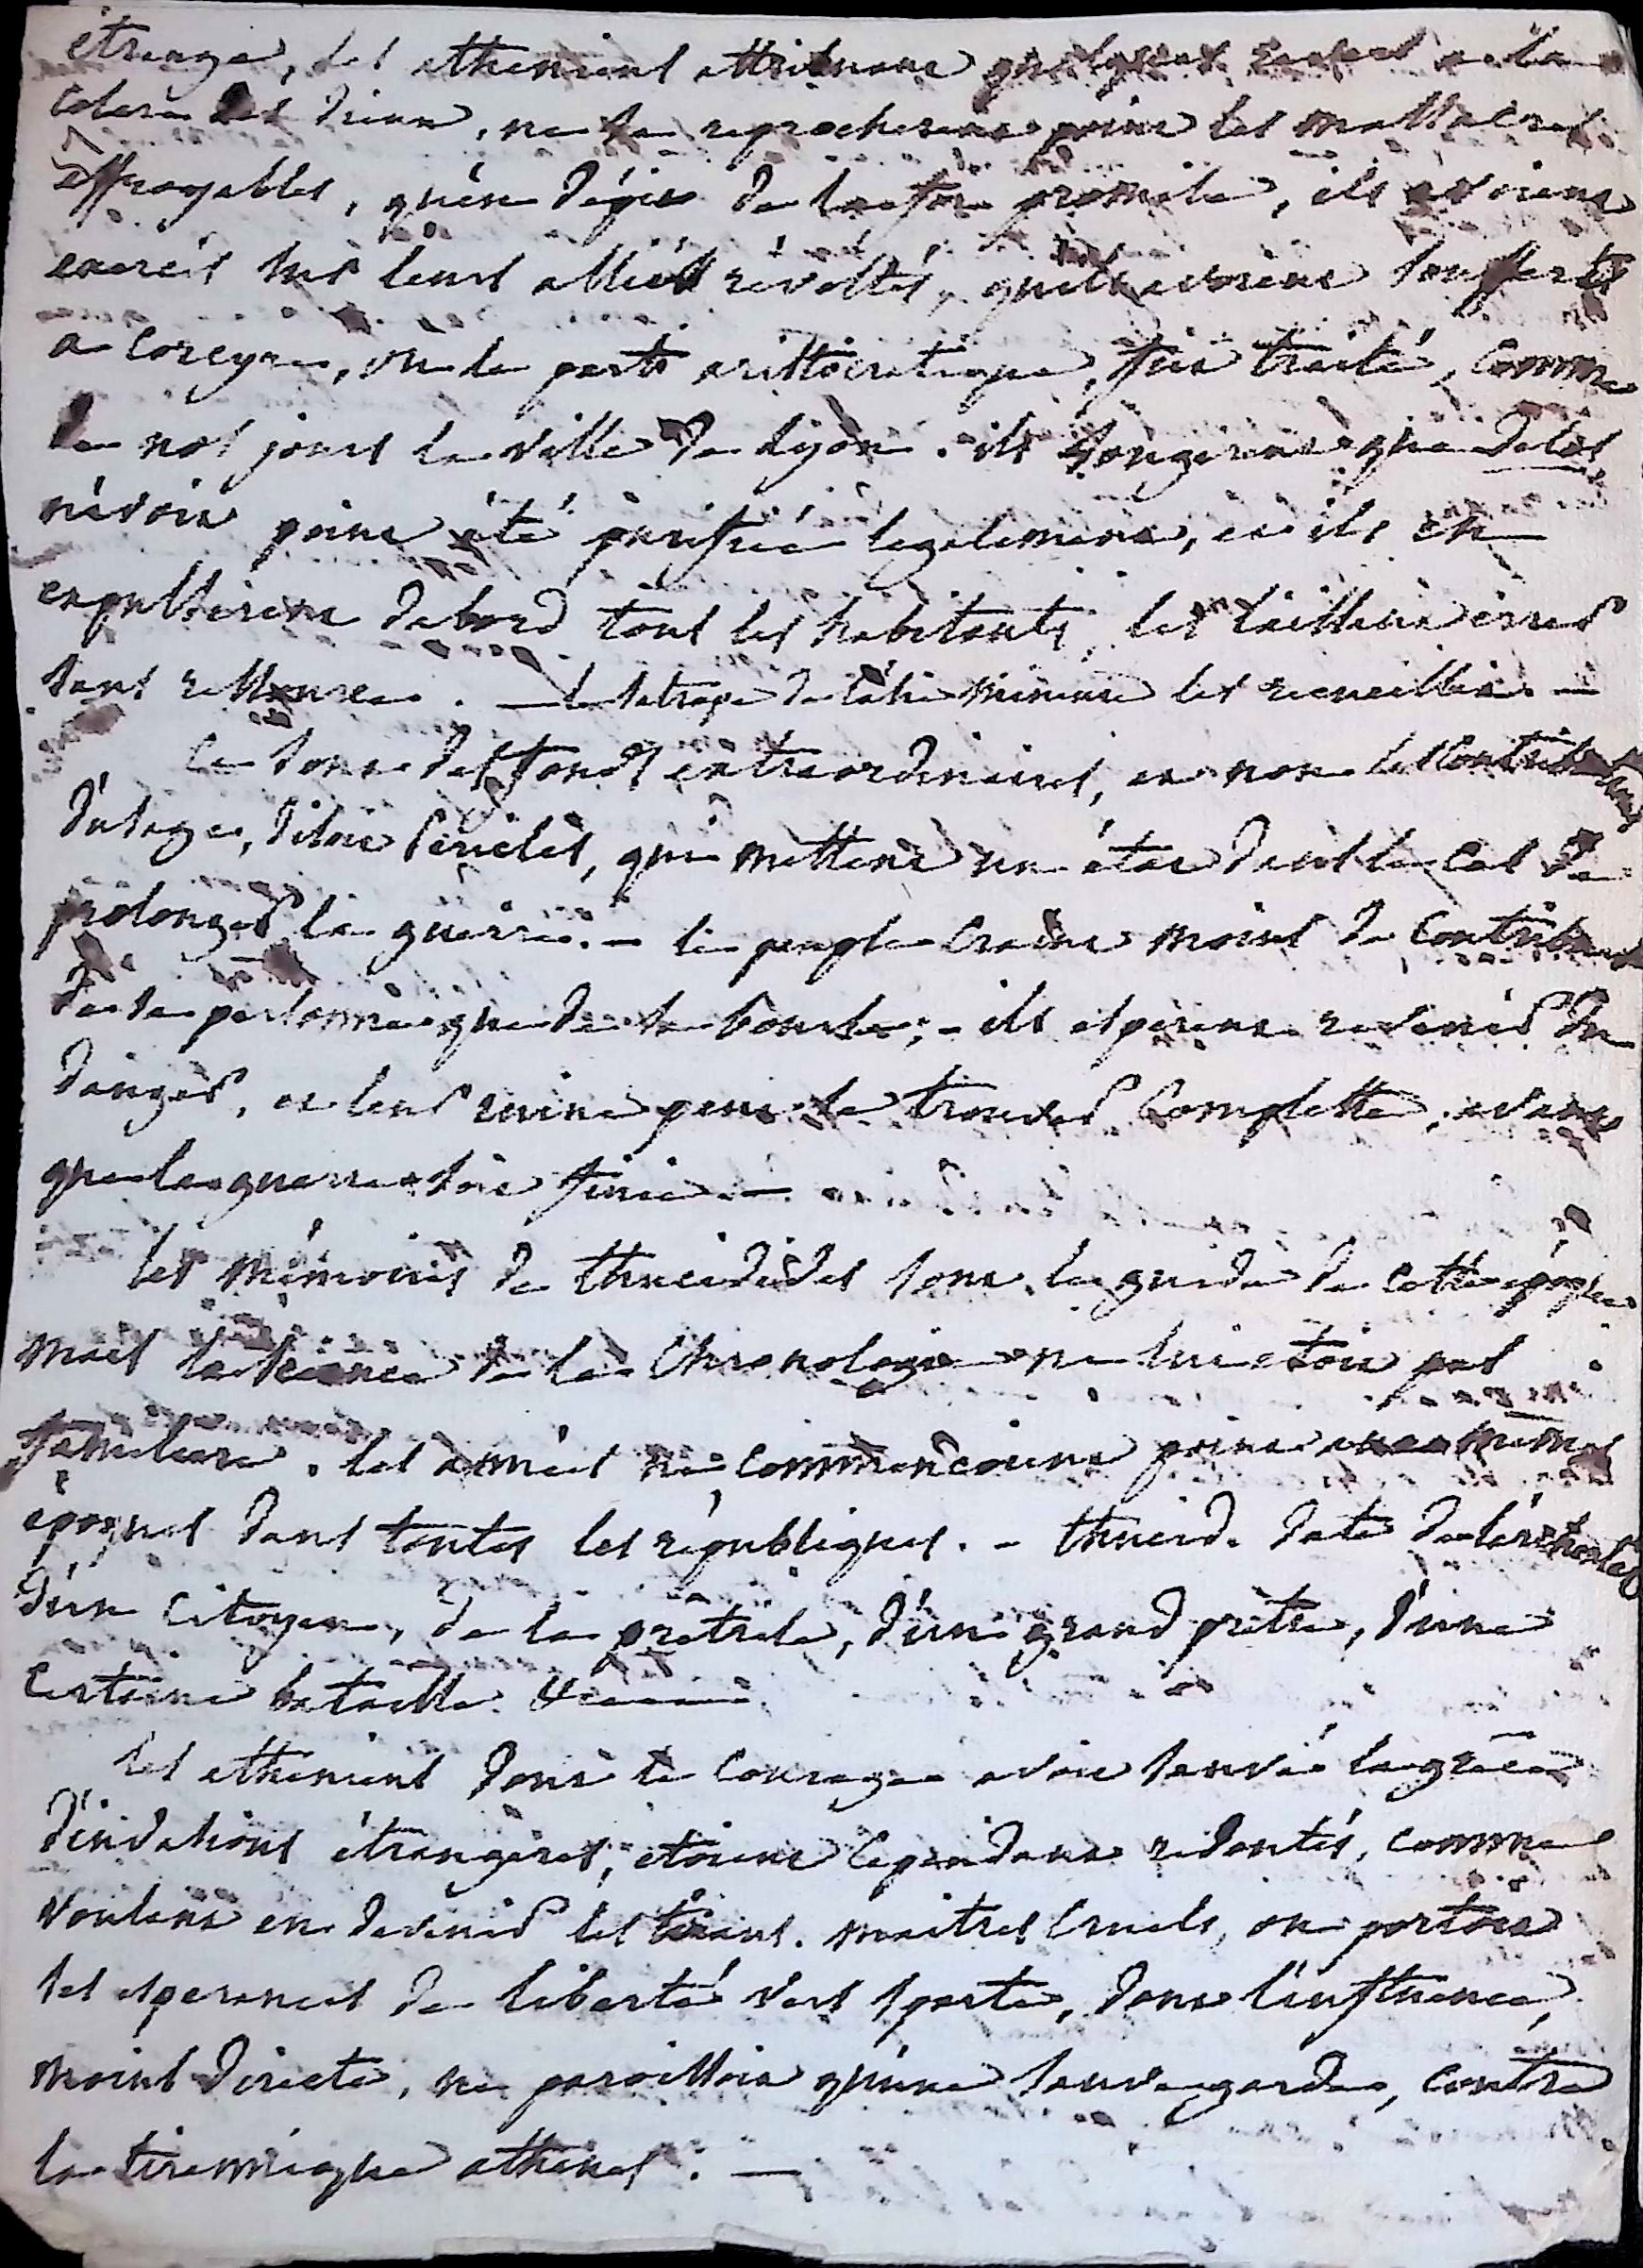 étrange, les atheniens attribuant à la
colere des dieux, ne se reprocherent point les massacres
effroyables, qu'en dépit de la foi promise, ils avoient
exercés sur leurs alliés révoltés, qu'ils avoient soufferts
a Corcyre, ou le parti aristocratique, fut traité, comme
de nos jours la ville de Lyon. ils songerent que Delos
n'avoit point été purifiée legalement, et ils en
expulserent dabord tous les habitants, les laissant errer
sans ressource. — le satrape de l'asie mineure les recueillit. —
Ce sont des fonds extraordinaires, et non les contributions
d'usage, disoit Periclès, qui mettent un état dans le cas de
prolonger la guerre. — le peuple craint moins de contribuer
de sa personne que de sa bourse; — ils esperent revenir du
danger, et leur ruine peut se trouver complette, avant
que la guerre soit finie. —
les mémoires de thucidides sont le guide de cette époque
mais la science de la chronologie ne lui etoit pas
familiere. les années ne commençoient point aux mêmes
époques dans toutes les républiques. — thucid. date de l'archontat
d'un citoyen, de la prêtrise, d'un grand prêtre, d'une
certaine bataille. &
Les atheniens dont le courage avoit sauvé la grèce
d'invasions étrangères, etoient cependant redoutés, comme
voulant en devenir les tirans. maitres cruels, on portoit
ses esperances de liberté vers sparte, dont l'influence,
moins directe, ne paroissoit qu'une sauvegarde, contre
la tirannique athenes. —